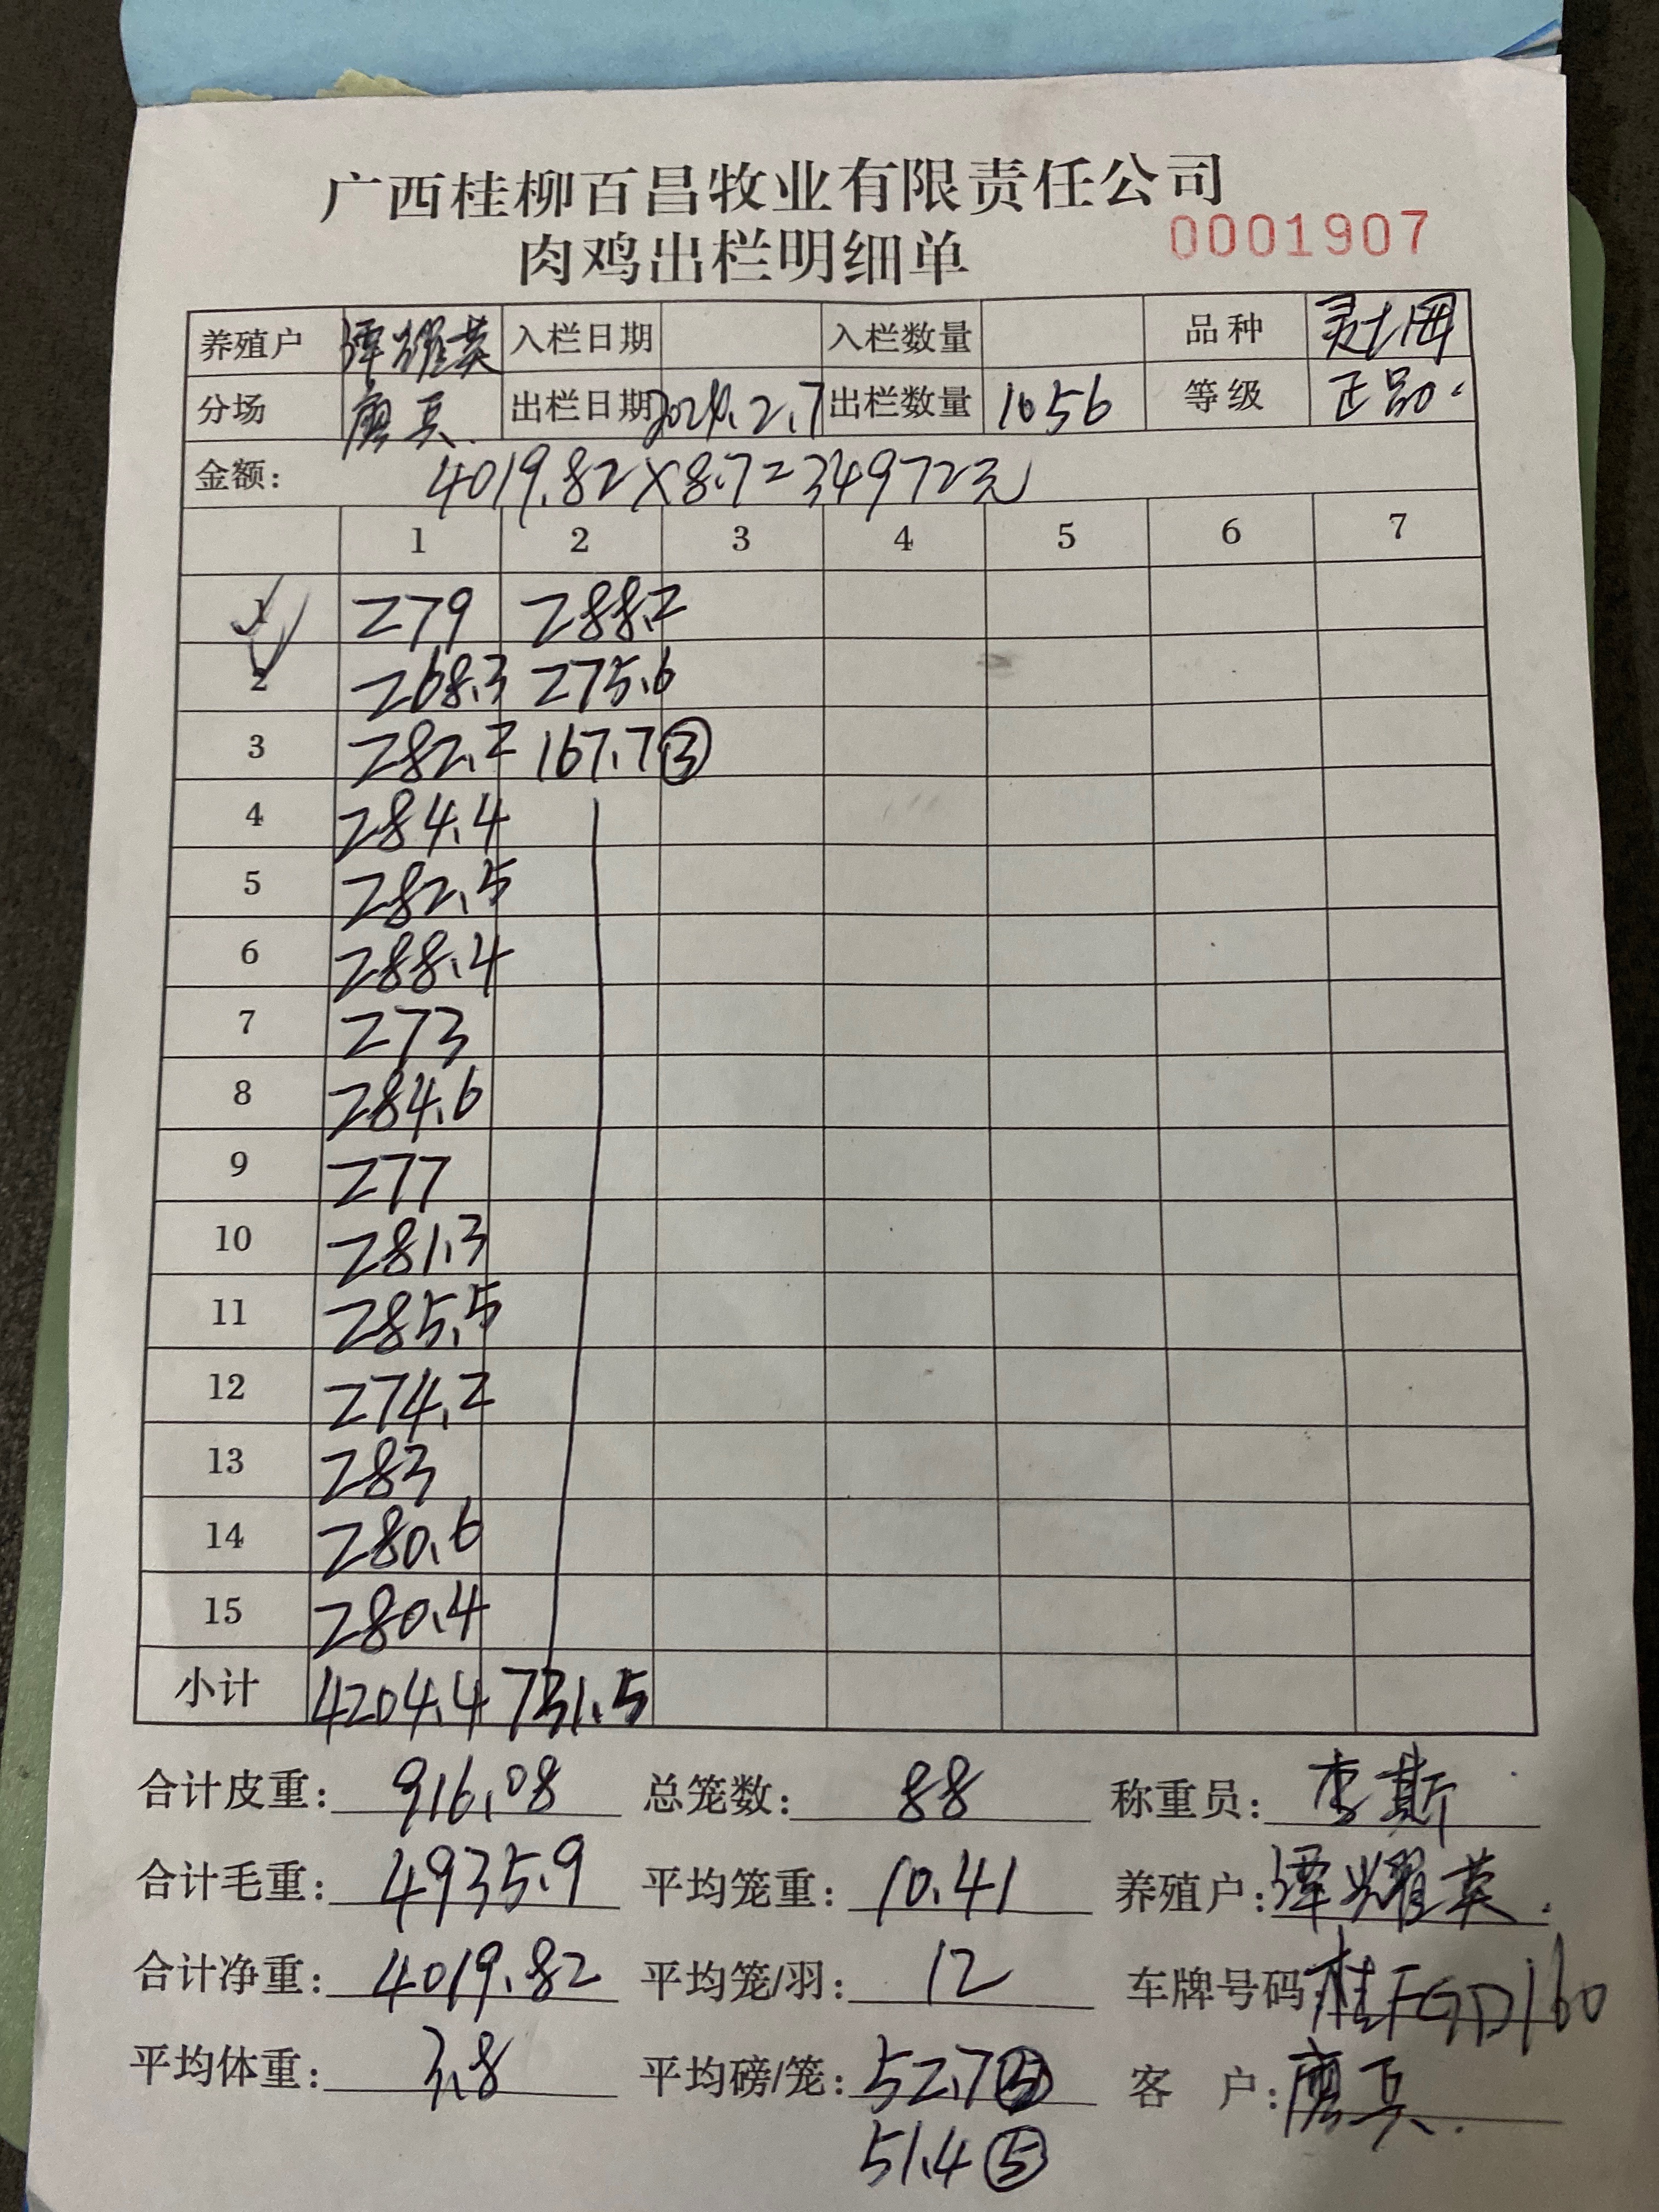 广西桂柳百昌牧业有限责任公司
肉鸡出栏明细单 0001907
养殖户 谭耀英 入栏日期 入栏数量 品种
分场 廖兵. 出栏日期 2024.2.7 出栏数量 1056 等级 正品.
金额: 4019.82×8.7=34972元
1 2 3 4 5 6 7
1 279 288.2
2 268.3 275.6
3 282.2 167.7 ③
4 284.4
5 282.5
6 288.4
7 273
8 284.6
9 277
10 281.3
11 285.5
12 274.2
13 283
14 280.6
15 280.4
小计 4204.4 731.5
合计皮重: 916.08 总笼数: 88 称重员: 李斯
合计毛重: 4935.9 平均笼重: 10.41 养殖户: 谭耀英.
合计净重: 4019.82 平均笼/羽: 12 车牌号码: 桂FGD160
平均体重: 3.8 平均磅/笼: 52.7 客户: 廖兵.
51.4 ⑤